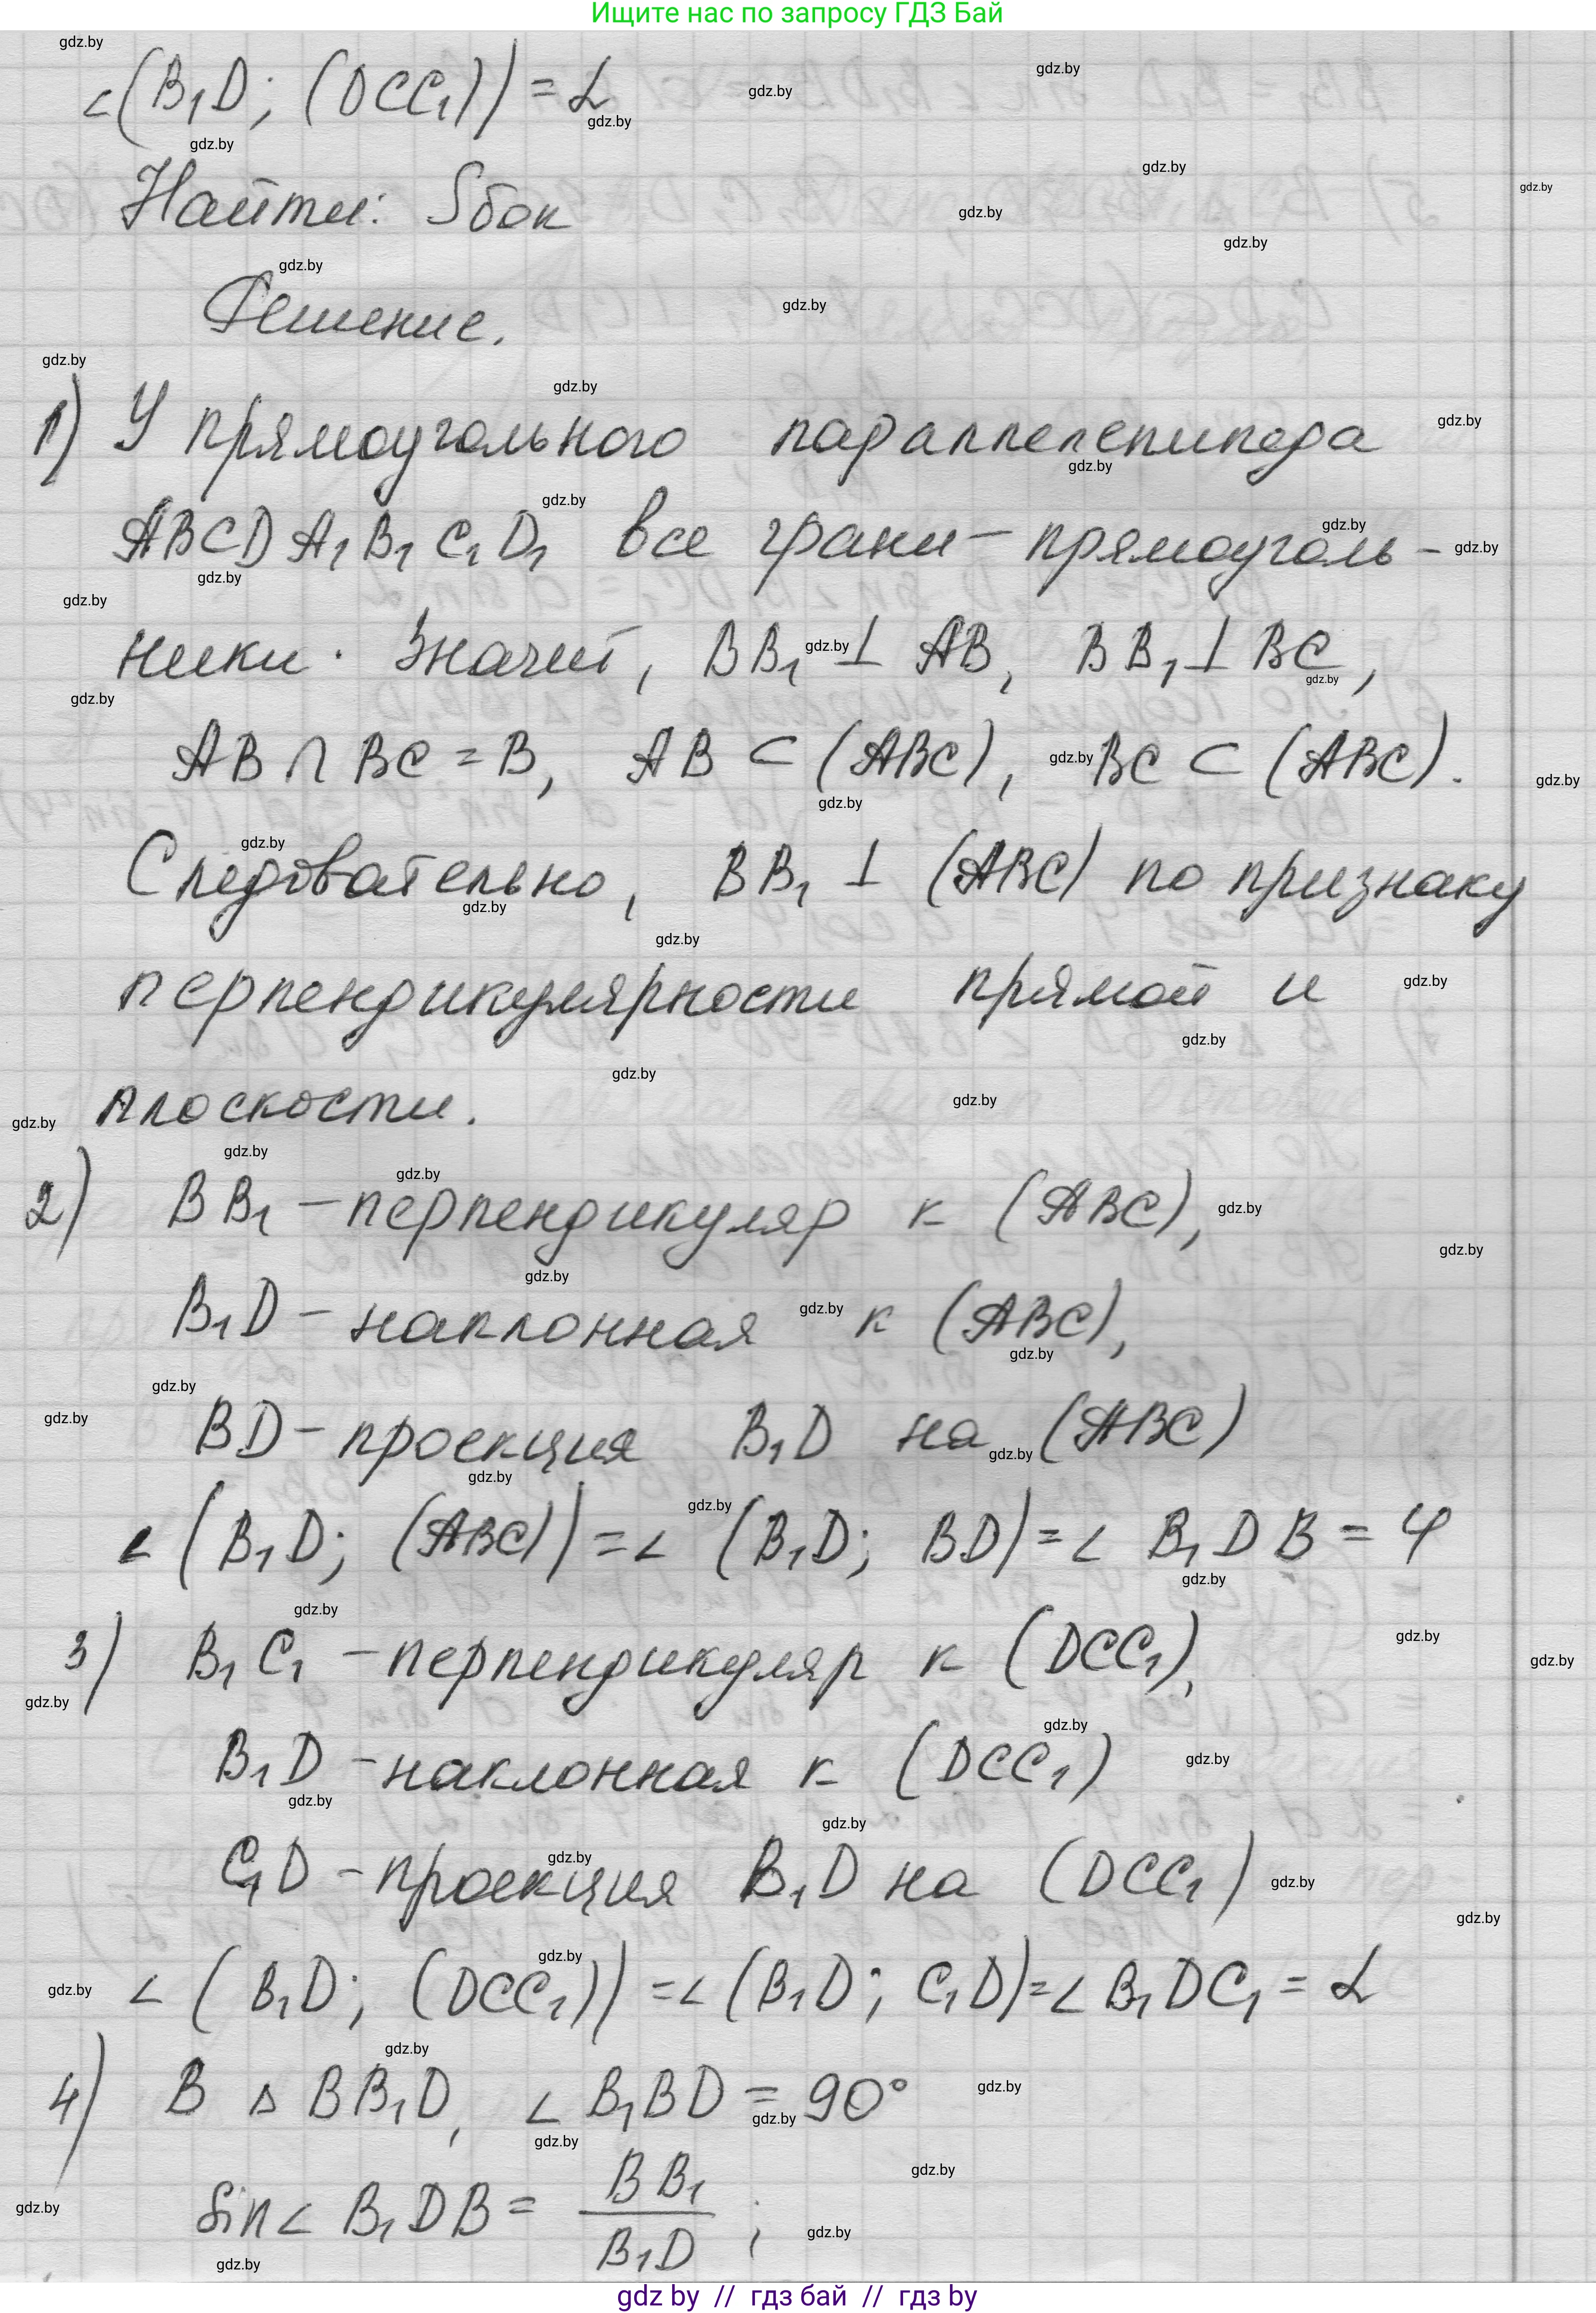 Ищите нас по запросу ГДЗ Бай
∠(B₁D; (DCC₁)) = α
Найти: Sбок
Решение.
1) У прямоугольного параллелепипеда
ABCDA₁B₁C₁D₁ все грани – прямоуголь-
ники. Значит, BB₁ ⊥ AB, BB₁ ⊥ BC,
AB ∩ BC = B, AB ⊂ (ABC), BC ⊂ (ABC).
Следовательно, BB₁ ⊥ (ABC) по признаку
перпендикулярности прямой и
плоскости.
2) BB₁ – перпендикуляр к (ABC),
B₁D – наклонная к (ABC),
BD – проекция B₁D на (ABC)
∠(B₁D; (ABC)) = ∠(B₁D; BD) = ∠B₁DB = φ
3) B₁C₁ – перпендикуляр к (DCC₁),
B₁D – наклонная к (DCC₁)
C₁D – проекция B₁D на (DCC₁)
∠(B₁D; (DCC₁)) = ∠(B₁D; C₁D) = ∠B₁DC₁ = α
4) В △BB₁D, ∠B₁BD = 90°
sin∠B₁DB = BB₁/B₁D ;
gdz by // гдз бай // гдз by